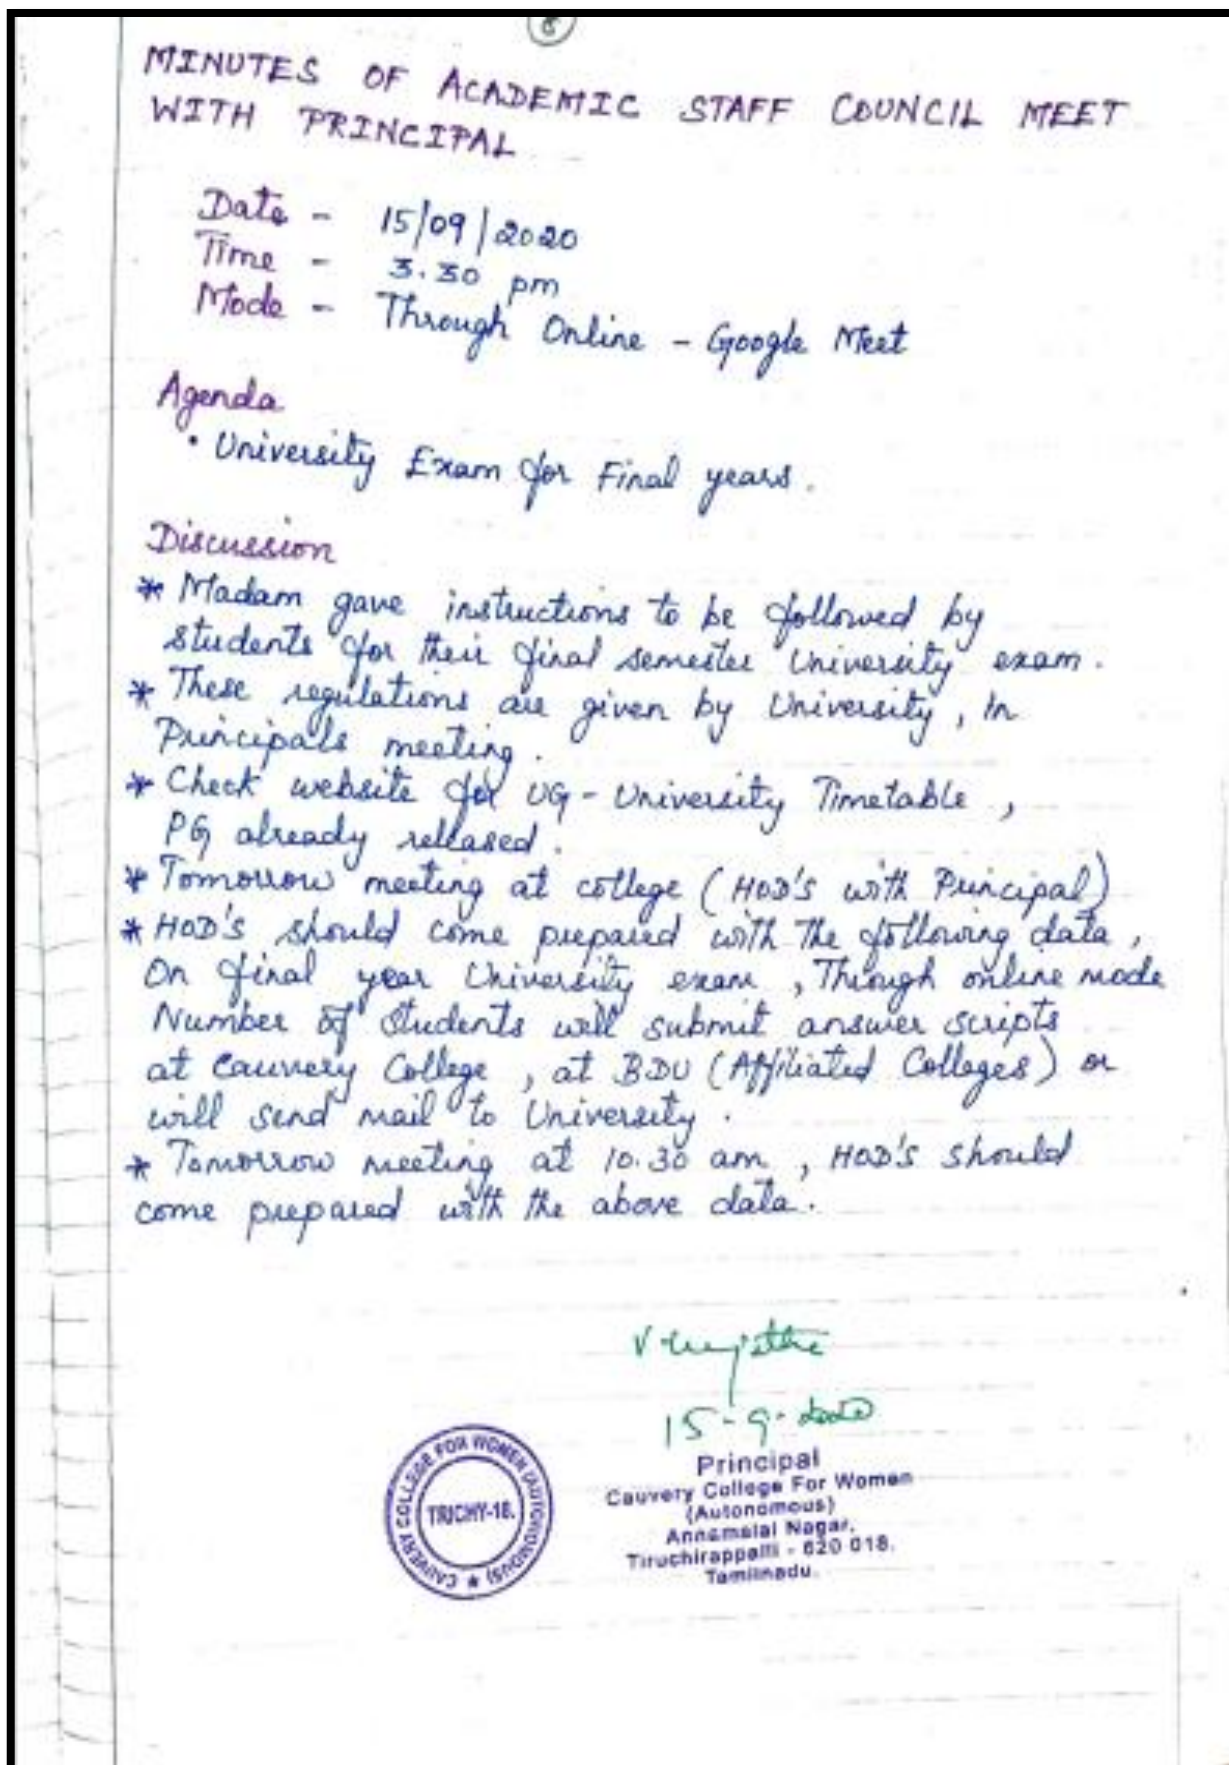 8
MINUTES OF ACADEMIC STAFF COUNCIL MEET
WITH PRINCIPAL
Date - 15/09/2020
Time - 3.30 pm
Mode - Through Online - Google Meet
Agenda
• University Exam for Final years.
Discussion
* Madam gave instructions to be followed by
students for their final semester University exam.
* These regulations are given by University, in
Principals meeting.
* Check website for UG - University Timetable,
PG already released.
* Tomorrow meeting at college (HOD's with Principal)
* HOD's should come prepared with the following data,
On final year University exam, Through online mode
Number of Students will submit answer scripts
at Cauvery College, at BDU (Affiliated Colleges) or
will send mail to University.
* Tomorrow meeting at 10.30 am, HOD's should
come prepared with the above data.
15-9-2020
Principal
Cauvery College For Women
(Autonomous)
Annamalai Nagar,
Tiruchirappalli - 620 018.
Tamilnadu.
CAUVERY COLLEGE FOR WOMEN (AUTONOMOUS)
TRICHY-18.